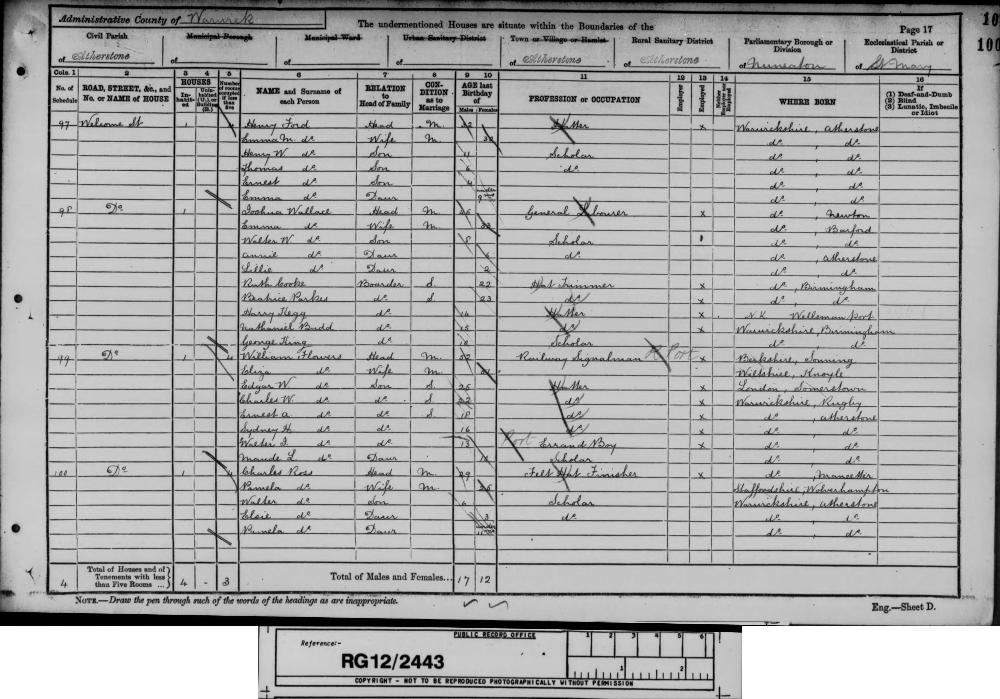 Administrative County of Warwick
The undermentioned Houses are situate within the Boundaries of the
Page 17
10
100
Civil Parish of Atherstone
Municipal Borough of
Municipal Ward of
Urban Sanitary District of
Town or Village or Hamlet of Atherstone
Rural Sanitary District of Atherstone
Parliamentary Borough or Division of Nuneaton
Ecclesiastical Parish or District of St Mary
Cols. 1 2 3 4 5 6 7 8 9 10 11 12 13 14 15 16
No. of Schedule
ROAD, STREET, &c., and No. or NAME of HOUSE
HOUSES
Inhabited
Uninhabited (U.), or Building (B.)
Number of rooms occupied if less than five
NAME and Surname of each Person
RELATION to Head of Family
CONDITION as to Marriage
AGE last Birthday of
Males Females
PROFESSION or OCCUPATION
Employer
Employed
Neither Employer nor Employed
WHERE BORN
If (1) Deaf-and-Dumb (2) Blind (3) Lunatic, Imbecile or Idiot
97 Welcome St 1 Henry Ford Head M. Hatter x Warwickshire, Atherstone
Emma M. do Wife M. do, do
Henry W. do Son 11 Scholar do, do
Thomas do Son do do, do
Ernest do Son do, do
Emma do Daur do, do
98 Do 1 Joshua Wallace Head M. General Labourer x do, Newton
Emma do Wife M. do, Barford
Walter W. do Son 8 Scholar do, do
Annie do Daur do do, Atherstone
Lillie do Daur 2 do, do
Ruth Cooke Boarder S 22 Hat Trimmer x do, Birmingham
Beatrice Parkes do S 23 do x do, do
Harry Kegg do 14 Hatter x N.K.
Nathaniel Budd do 15 do x Warwickshire, Birmingham
George King do 10 Scholar do, do
99 Do 1 4 William Flowers Head M. 52 Railway Signalman x Berkshire, Sonning
Eliza do Wife M. 51 Wiltshire, Knoyle
Edgar W do Son S. 25 Hatter x London, Somerstown
Charles W. do do S 22 do x Warwickshire, Rugby
Ernest A. do do S 18 do x do, Atherstone
Sydney H. do do 16 do x do, do
Walter J. do do 13 Errand Boy x do, do
Maude L. do Daur Scholar do, do
100 Do 1 4 Charles Ross Head M. 29 Felt Hat Finisher x do, Mancetter
Pamela do Wife M. 25 Staffordshire, Wolverhampton
Walter do Son 6 Scholar Warwickshire, Atherstone
Elsie do Daur 3 do do, do
Pamela do Daur do, do
4 Total of Houses and of Tenements with less than Five Rooms ... 4 - 3 Total of Males and Females... 17 12
NOTE.—Draw the pen through such of the words of the headings as are inappropriate.
Eng.—Sheet D.
PUBLIC RECORD OFFICE
Reference:-
RG12/2443
1 2 3 4 5 6
1 2
COPYRIGHT - NOT TO BE REPRODUCED PHOTOGRAPHICALLY WITHOUT PERMISSION